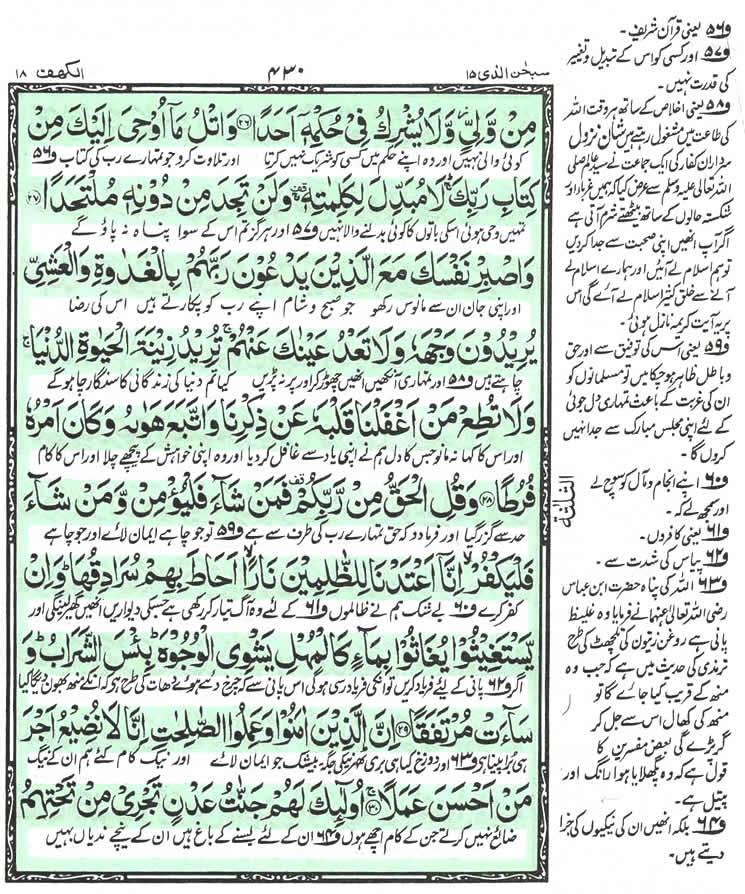 سبحٰن الذی ۱۵ ۴۳۰ الکھف ۱۸
مِنْ وَّلِیٍّ ۫ وَّلَا یُشْرِكُ فِیْ حُكْمِهٖۤ اَحَدًا ﴿۲۶﴾ وَاتْلُ مَاۤ اُوْحِیَ اِلَیْكَ مِنْ
کوئی والی نہیں اور وہ اپنے حکم میں کسی کو شریک نہیں کرتا اور تلاوت کرو جو تمہارے رب کی کتاب و۵۶
كِتَابِ رَبِّكَ ۚ لَا مُبَدِّلَ لِكَلِمٰتِهٖ ۚ۫ وَلَنْ تَجِدَ مِنْ دُوْنِهٖ مُلْتَحَدًا ﴿۲۷﴾
تمہیں وحی ہوئی اسکی باتوں کا کوئی بدلنے والا نہیں و۵۷ اور ہرگز تم اس کے سوا پناہ نہ پاؤ گے
وَاصْبِرْ نَفْسَكَ مَعَ الَّذِیْنَ یَدْعُوْنَ رَبَّهُمْ بِالْغَدٰوةِ وَالْعَشِیِّ
اور اپنی جان ان سے مانوس رکھو جو صبح و شام اپنے رب کو پکارتے ہیں اس کی رضا
یُرِیْدُوْنَ وَجْهَهٗ وَلَا تَعْدُ عَیْنٰكَ عَنْهُمْ ۚ تُرِیْدُ زِیْنَةَ الْحَیٰوةِ الدُّنْیَا ۚ
چاہتے ہیں و۵۸ اور تمہاری آنکھیں انھیں چھوڑ کر اور پر نہ پڑیں کیا تم دنیا کی زندگانی کا سنگار چاہو گے
وَلَا تُطِعْ مَنْ اَغْفَلْنَا قَلْبَهٗ عَنْ ذِكْرِنَا وَاتَّبَعَ هَوٰىهُ وَكَانَ اَمْرُهٗ
اور اس کا کہا نہ مانو جس کا دل ہم نے اپنی یاد سے غافل کر دیا اور وہ اپنی خواہش کے پیچھے چلا اور اس کا کام
فُرُطًا ﴿۲۸﴾ وَقُلِ الْحَقُّ مِنْ رَّبِّكُمْ ۫ فَمَنْ شَآءَ فَلْیُؤْمِنْ وَّمَنْ شَآءَ
حد سے گزر گیا اور فرما دو کہ حق تمہارے رب کی طرف سے ہے و۵۹ تو جو چاہے ایمان لائے اور جو چاہے
فَلْیَكْفُرْ ۙ اِنَّاۤ اَعْتَدْنَا لِلظّٰلِمِیْنَ نَارًا ۙ اَحَاطَ بِهِمْ سُرَادِقُهَا ؕ وَاِنْ
کفر کرے و۶۰ بے شک ہم نے ظالموں و۶۱ کے لئے وہ آگ تیار کر رکھی ہے جسکی دیواریں انھیں گھیر لینگی اور
یَّسْتَغِیْثُوْا یُغَاثُوْا بِمَآءٍ كَالْمُهْلِ یَشْوِی الْوُجُوْهَ ؕ بِئْسَ الشَّرَابُ ؕ وَ
اگر و۶۲ پانی کے لئے فریاد کریں تو انکی فریاد رسی ہوگی اس پانی سے کہ چرخ دئے ہوئے دھات کی طرح ہی کہ انکے منھ بھون دیگا کیا
سَآءَتْ مُرْتَفَقًا ﴿۲۹﴾ اِنَّ الَّذِیْنَ اٰمَنُوْا وَعَمِلُوا الصّٰلِحٰتِ اِنَّا لَا نُضِیْعُ اَجْرَ
ہی برا پینا ہے و۶۳ اور دوزخ کیا ہی بری ٹھہرنیکی جگہ بیشک جو ایمان لائے اور نیک کام کئے ہم ان کے نیگ
مَنْ اَحْسَنَ عَمَلًا ۚ﴿۳۰﴾ اُولٰٓئِكَ لَهُمْ جَنّٰتُ عَدْنٍ تَجْرِیْ مِنْ تَحْتِهِمُ
ضائع نہیں کرتے جن کے کام اچھے ہوں و۶۴ ان کے لئے بسنے کے باغ ہیں ان کے نیچے ندیاں بہیں
و۵۶ یعنی قرآن شریف۔
و۵۷ اور کسی کو اس کے تبدیل و تغییر
کی قدرت نہیں۔
و۵۸ یعنی اخلاص کے ساتھ ہر وقت اللہ
کی طاعت میں مشغول رہتے ہیں شان نزول
سرداران کفار کی ایک جماعت نے سید عالم صلی
اللہ تعالیٰ علیہ وسلم سے عرض کیا کہ ہمیں غرباء اور
شکستہ حالوں کے ساتھ بیٹھتے شرم آتی ہے
اگر آپ انھیں اپنی صحبت سے جدا کردیں
تو ہم اسلام لے آئیں اور ہمارے اسلام لے
آنے سے خلق کثیر اسلام لے آئے گی اس
پر یہ آیت کریمہ نازل ہوئی۔
و۵۹ یعنی اس کی توفیق سے اور حق
و باطل ظاہر ہو چکا میں تو مسلمانوں کو
ان کی غربت کے باعث تمہاری دل جوئی
کے لئے اپنی مجلس مبارک سے جدا نہیں
کروں گا۔
و۶۰ اپنے انجام و مآل کو سوچ لے
اور سمجھ لے کہ۔
و۶۱ یعنی کافروں۔
و۶۲ پیاس کی شدت سے۔
و۶۳ اللہ کی پناہ حضرت ابن عباس
رضی اللہ تعالیٰ عنہما نے فرمایا وہ غلیظ
پانی ہے روغن زیتون کی تلچھٹ کی طرح
ترمذی کی حدیث میں ہے کہ جب وہ
منھ کے قریب کیا جائے گا تو
منھ کی کھال اس سے جل کر
گر پڑے گی بعض مفسرین کا
قول ہے کہ وہ پگھلایا ہوا رانگ اور
پیتل ہے۔
و۶۴ بلکہ انھیں ان کی نیکیوں کی جزا
دیتے ہیں۔
الثلثة